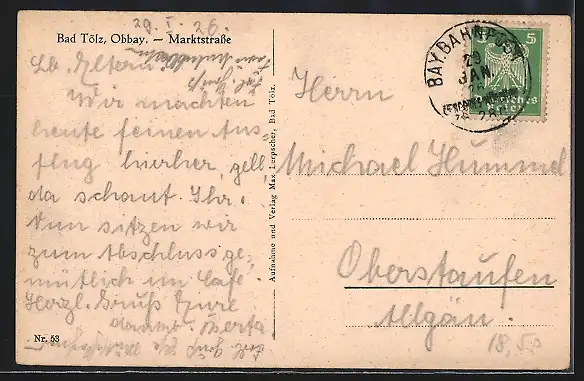 29. I. 26.
Bad Tölz, Obbay. — Marktstraße
Lb. Eltern!
Wir machten
heute feinen Aus,
flug hierher, gell,
da schaut Ihr.
Nun sitzen wir
zum Abschluss ge,
mütlich im Café.
Herzl. Gruß Eure
Berta
Nr. 53
Aufnahme und Verlag Max Lerpscher, Bad Tölz.
BAY. BAHNPOST
29
JAN.
5
Herrn
Michael Hummel
Oberstaufen
Allgäu.
18,50